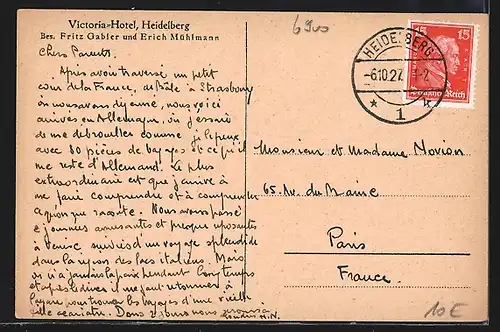 Victoria-Hotel, Heidelberg
Bes. Fritz Gabler und Erich Mühlmann
6900
Chers Parents.
Après avoir traversé un petit
coin de la France, de Bâle à Strasbourg
où nous avons déjeuné, nous voici
arrivés en Allemagne, où j'essaie
de me debrouiller comme je le peux
avec 80 pièces de bagages et ce qu'il
me reste d'Allemand. Le plus
extraordinaire est que j'arrive à
me faire comprendre et à comprendre
ce qu'on me raconte. Nous avons passé
journées amusantes et presque reposantes
à Venise suivies d'un voyage splendide
dans la région des lacs italiens. Mais
pendant longtemps
et il me faut retourner à
la gare pour les bagages d'une vieille
Dans 2 jours nous
HEIDELBERG
-6.10.27.
* 1
15 15
Deutsches Reich
Monsieur et Madame Novion
65 Av. du Maine
Paris
France.
10E